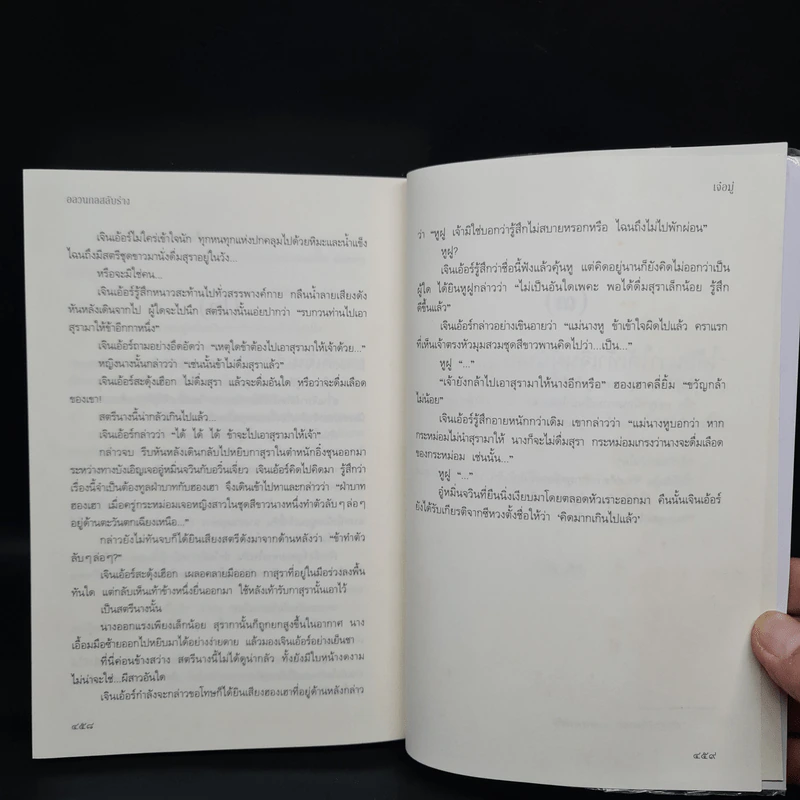 อลวนกลสลับร่าง
เจินเอ้อร์ไม่ใคร่เข้าใจนัก ทุกหนทุกแห่งปกคลุมไปด้วยหิมะและน้ำแข็ง
ไฉนถึงมีสตรีชุดขาวมานั่งดื่มสุราอยู่ในวัง...
หรือจะมิใช่คน...
เจินเอ้อร์รู้สึกหนาวสะท้านไปทั่วสรรพางค์กาย กลืนน้ำลายเสียงดัง
หันหลังเดินจากไป ผู้ใดจะไปนึก สตรีนางนั้นเอ่ยปากว่า “รบกวนท่านไปเอา
สุรามาให้ข้าอีกกาหนึ่ง”
เจินเอ้อร์ถามอย่างอึดอัดว่า “เหตุใดข้าต้องไปเอาสุรามาให้เจ้าด้วย...”
หญิงนางนั้นกล่าวว่า “เช่นนั้นข้าไม่ดื่มสุราแล้ว”
เจินเอ้อร์สะดุ้งเฮือก ไม่ดื่มสุรา แล้วจะดื่มอันใด หรือว่าจะดื่มเลือด
ของเขา!
สตรีนางนี้น่ากลัวเกินไปแล้ว...
เจินเอ้อร์กล่าวว่า “ได้ ได้ ได้ ข้าจะไปเอาสุรามาให้เจ้า”
กล่าวจบ รีบหันหลังเดินกลับไปหยิบกาสุราในตำหนักอิ่งชุนออกมา
ระหว่างทางบังเอิญเจออู่หมิ่นจวินกับอวิ๋นเจี่ยว เจินเอ้อร์คิดไปคิดมา รู้สึกว่า
เรื่องนี้จำเป็นต้องทูลฝ่าบาทกับฮองเฮา จึงเดินเข้าไปหาและกล่าวว่า “ฝ่าบาท
ฮองเฮา เมื่อครู่กระหม่อมเจอหญิงสาวในชุดสีขาวนางหนึ่งทำตัวลับๆ ล่อๆ
อยู่ด้านตะวันตกเฉียงเหนือ...”
กล่าวยังไม่ทันจบก็ได้ยินเสียงสตรีดังมาจากด้านหลังว่า “ข้าทำตัว
ลับๆ ล่อๆ?”
เจินเอ้อร์สะดุ้งเฮือก เผลอคลายมือออก กาสุราที่อยู่ในมือร่วงลงพื้น
ทันใด แต่กลับเห็นเท้าข้างหนึ่งยื่นออกมา ใช้หลังเท้ารับกาสุรานั้นเอาไว้
เป็นสตรีนางนั้น
นางออกแรงเพียงเล็กน้อย สุรากานั้นก็ถูกยกสูงขึ้นในอากาศ นาง
เอื้อมมือซ้ายออกไปหยิบมาได้อย่างง่ายดาย แล้วมองเจินเอ้อร์อย่างเย็นชา
ที่นี่ค่อนข้างสว่าง สตรีนางนี้ไม่ได้ดูน่ากลัว ทั้งยังมีใบหน้างดงาม
ไม่น่าจะใช่...ผีสาวอันใด
เจินเอ้อร์กำลังจะกล่าวขอโทษก็ได้ยินเสียงฮองเฮาที่อยู่ด้านหลังกล่าว
๔๕๘
เจ๋อมู่
ว่า “หูฝู เจ้ามิใช่บอกว่ารู้สึกไม่สบายหรอกหรือ ไฉนถึงไม่ไปพักผ่อน”
หูฝู?
เจินเอ้อร์รู้สึกว่าชื่อนี้ฟังแล้วคุ้นหู แต่คิดอยู่นานก็ยังคิดไม่ออกว่าเป็น
ผู้ใด ได้ยินหูฝูกล่าวว่า “ไม่เป็นอันใดเพคะ พอได้ดื่มสุราเล็กน้อย รู้สึก
ดีขึ้นแล้ว”
เจินเอ้อร์กล่าวอย่างเขินอายว่า “แม่นางหู ข้าเข้าใจผิดไปแล้ว คราแรก
ที่เห็นเจ้าตรงหัวมุมสวมชุดสีขาวพานคิดไปว่า...เป็น...”
หูฝู “...”
“เจ้ายังกล้าไปเอาสุรามาให้นางอีกหรือ” ฮองเฮาคลี่ยิ้ม “ขวัญกล้า
ไม่น้อย”
เจินเอ้อร์รู้สึกอายหนักกว่าเดิม เขากล่าวว่า “แม่นางหูบอกว่า หาก
กระหม่อมไม่นำสุรามาให้ นางก็จะไม่ดื่มสุรา กระหม่อมเกรงว่านางจะดื่มเลือด
ของกระหม่อม เช่นนั้น...”
หูฝู “...”
อู่หมิ่นจวินที่ยืนนิ่งเงียบมาโดยตลอดหัวเราะออกมา คืนนั้นเจินเอ้อร์
ยังได้รับเกียรติจากซีหวงตั้งชื่อให้ว่า ‘คิดมากเกินไปแล้ว’
๔๕๙